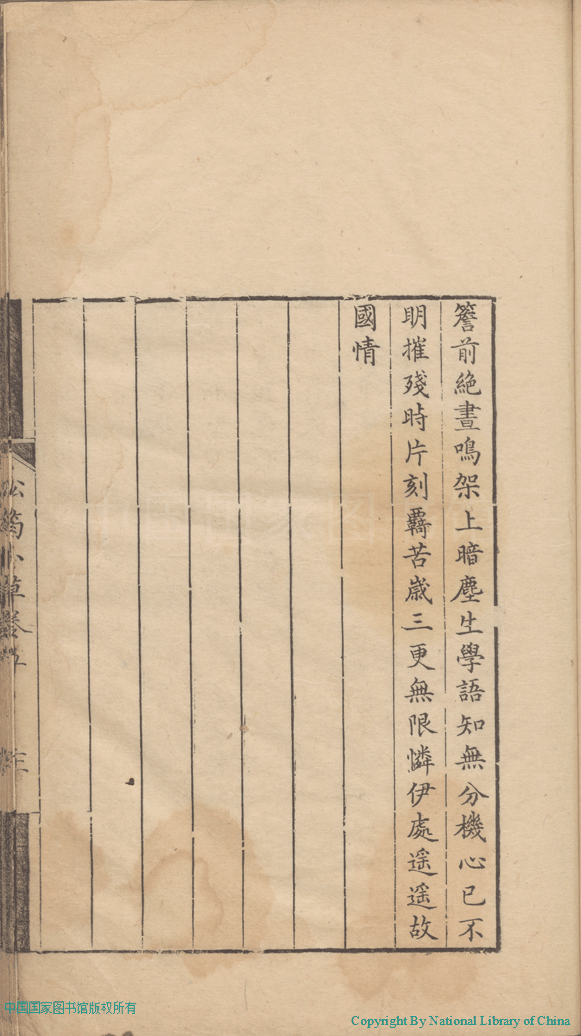 簷前絶晝鳴架上暗塵生學語知無分機心已不
明摧殘時片刻覊苦歳三更無限憐伊處遥遥故
國情
松筠小草卷
中国国家图书馆版权所有
Copyright By National Library of China